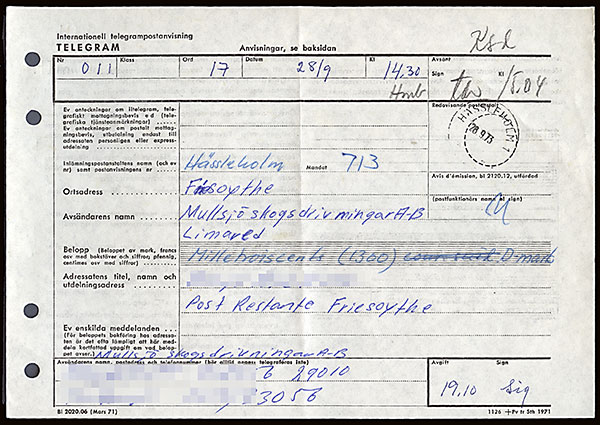 Internationell telegrampostanvisning
TELEGRAM
Anvisningar, se baksidan
Nr 011
Klass
Ord 17
Datum 28/9
Kl 14.30
Avsänt
Sign
Kl 15.04
Ev anteckningar om lltelegram, tele-
grafiskt mottagningsbevis e d (tele-
grafiska tjänsteanmärkningar).
Ev anteckningar om postalt mottag-
ningsbevis, utbetalning endast till
adressaten personligen eller express-
utdelning
Redovisande postanstalt
HÄSSLEHOLM 1
28.9.73
Inlämningspostanstaltens namn (och ev
nr) samt postanvisningens nr
Hässleholm
Mandat 713
Avis d'émission, bl 2120.12, utfärdad
Ortsadress
Friesoythe
(postfunktionärs namn el sign)
Avsändarens namn
Mullsjö skogsdrivningar A-B
Limared
Belopp (Beloppet av mark, francs
osv med bokstäver och siffror; pfennig,
centimes osv med siffror)
Milletroiscents (1360) D-mark
Adressatens titel, namn och
utdelningsadress
Post Restante Friesoythe
Ev enskilda meddelanden
(För beloppets bekräftning hos adressaten
är det ofta lämpligt att här med-
dela kortfattad uppgift om vad belop-
pet avser.)
Mullsjö skogsdrivningar A-B
Avsändarens namn, postadress och telefonnummer (bör alltid anges; telegraferas inte)
6 29010
3056
Avgift
19,10
Sign
Sig
Bl 2020.06 (Mars 71)
1126 Pv tr Sth 1971